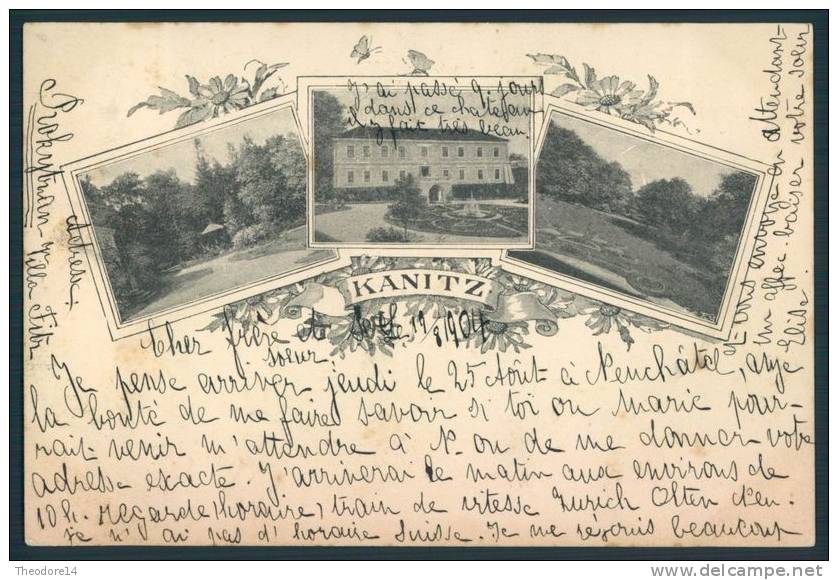 J'ai passé 9. jours
dans ce chateau
il y fait très beau.
KANITZ
Cher frère et 19/8 1904
soeur
Je pense arriver jeudi le 25 Août à Neuchâtel, aye
la bonté de me faire savoir si toi ou Marie pour-
rait venir m'attendre à N. ou de me donner votre
adresse exacte. J'arriverai le matin aux environs de
10 h. regarde (horaire) train de vitesse Zurich Olten
je n'ai pas d'horaire Suisse. Je me réjouis beaucoup
et vous envoye en attendant
un affec. baiser votre soeur
Elisa.
adresse:
Villa
Theodore14